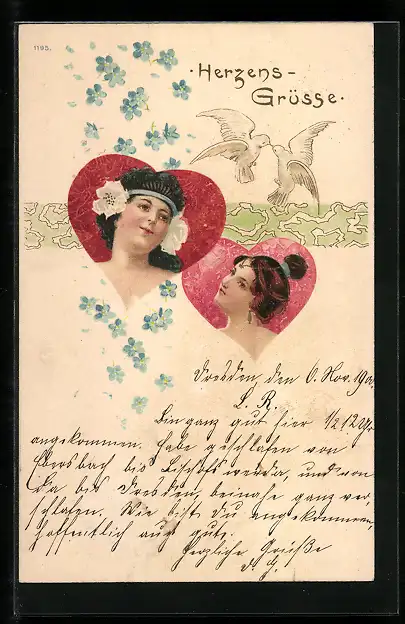 1195.
·Herzens-
Grüsse·
Dresden, den 6. Nov. 190
L. R.
Bin ganz gut hier 1/2 12 Uhr
angekommen. Habe geschlafen von
Ebersbach bis Bischofswerda, und von
da bis Dresden, beinase ganz ver,
schlafen. Wie bist du angekommen,
hoffentlich auch gut.
Herzliche Grüße
d. G.